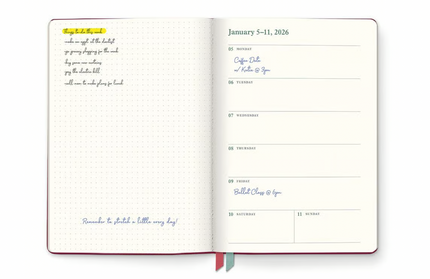 things to do this week
make an appt at the dentist
go grocery shopping for the week
buy some new mittens
pay the electric bill
call mom to make plans for lunch
Remember to stretch a little every day!
January 5–11, 2026
05 MONDAY
Coffee Date
w/ Katie @ 3pm
06 TUESDAY
07 WEDNESDAY
08 THURSDAY
09 FRIDAY
Ballet Class @ 6pm
10 SATURDAY
11 SUNDAY